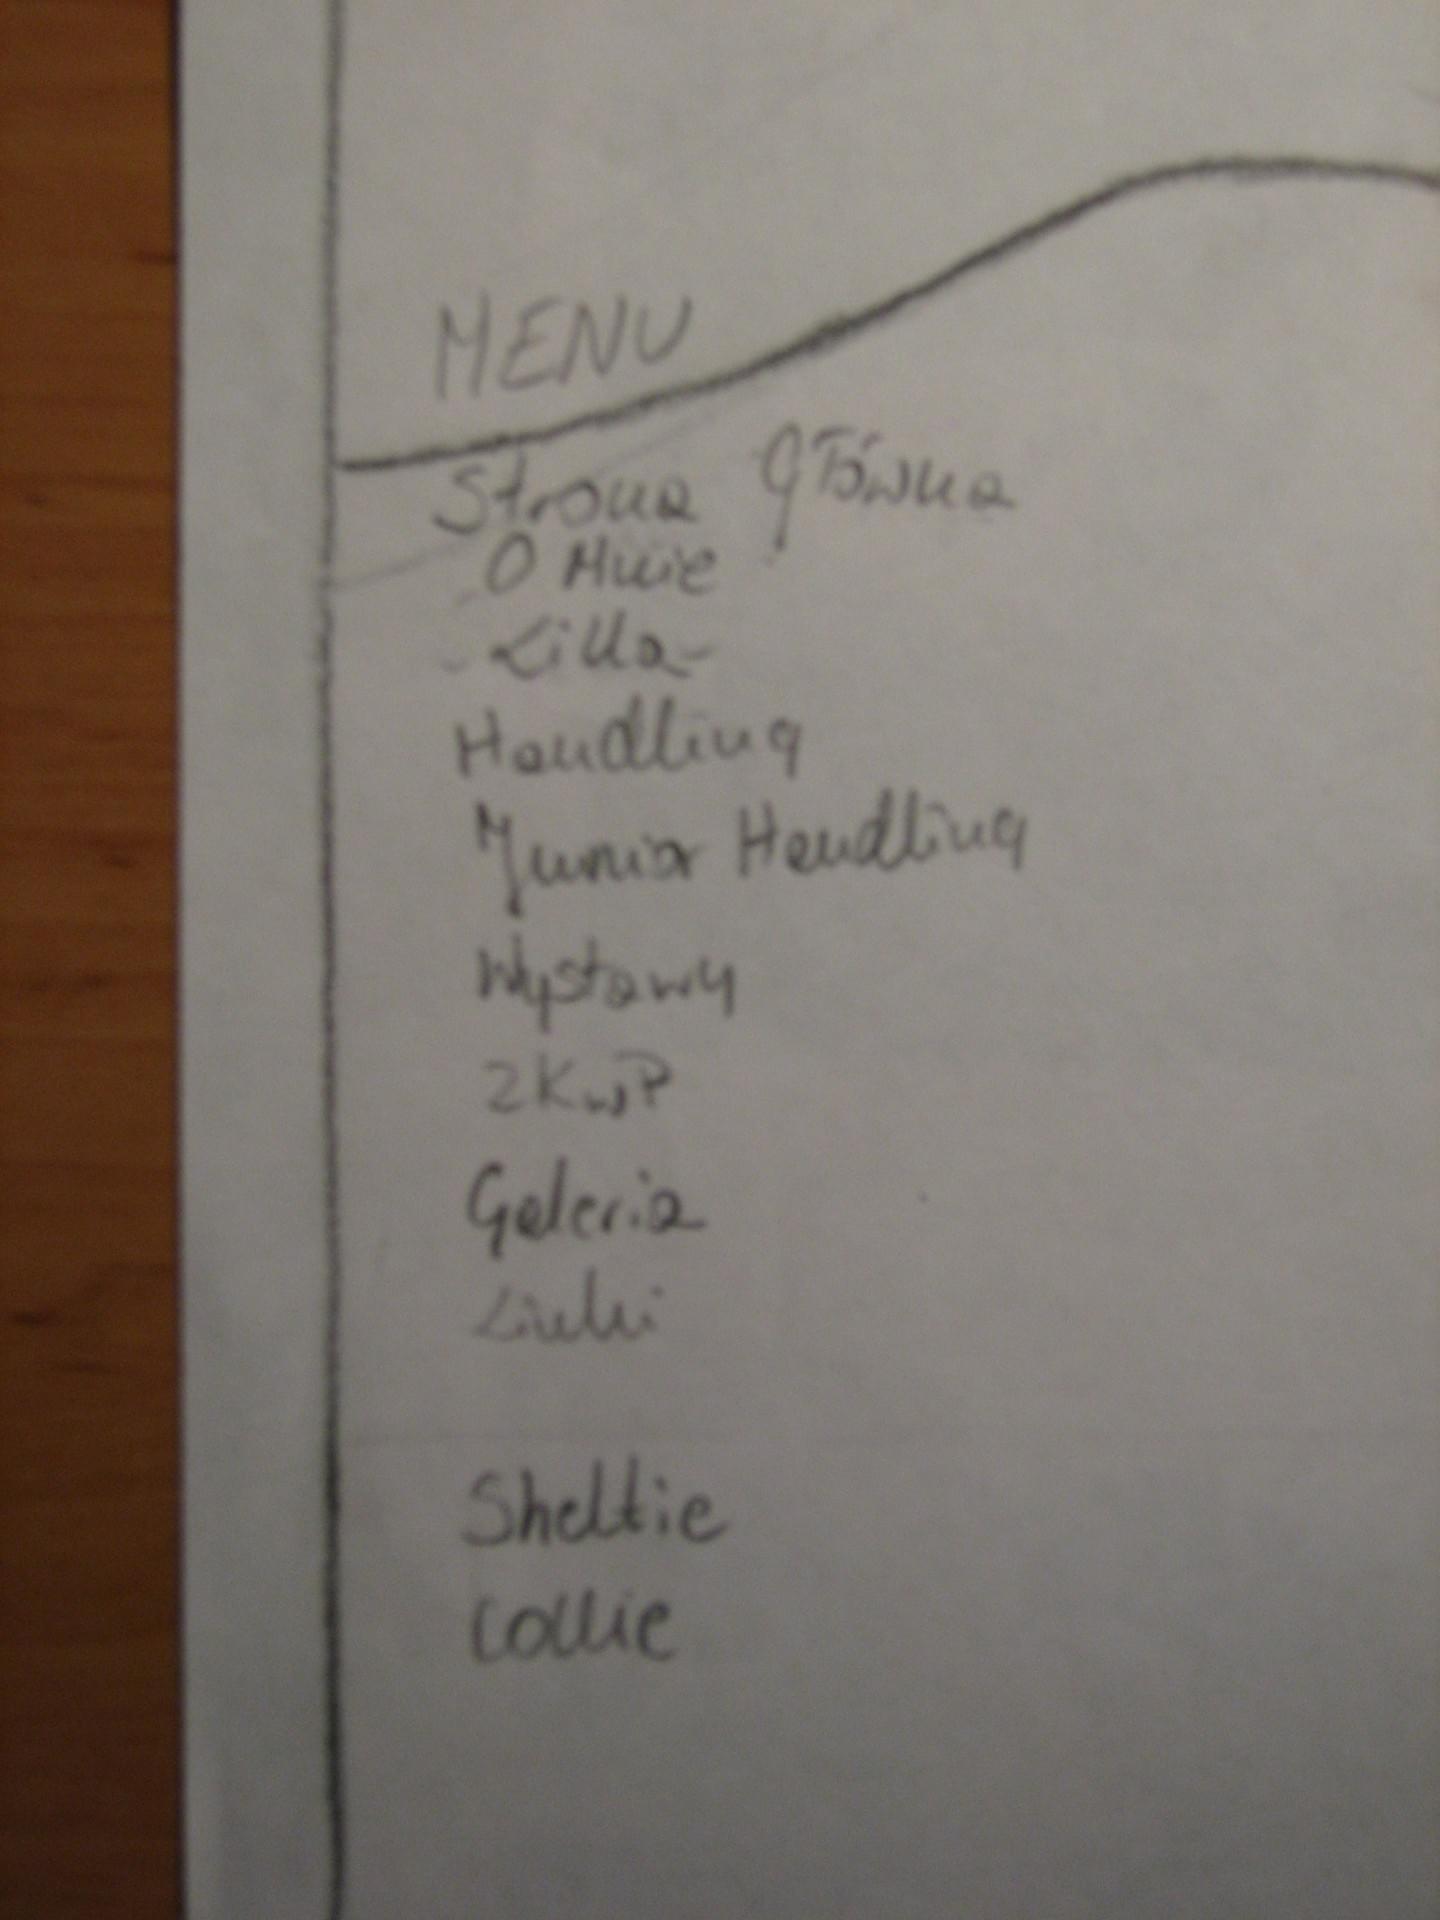 MENU
Strona Główna
O Mnie
- Lilla -
Handling
Junior Handling
Wystawy
ZKwP
Galeria
Linki
Sheltie
Collie